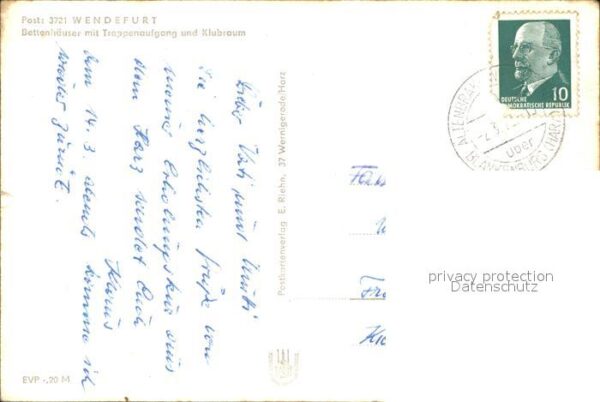 Post: 3721 WENDEFURT
Bettenhäuser mit Treppenaufgang und Klubraum
Liebe Vati und Mutti
Die herzlichsten Grüße von
meine Erholungskur aus
dem Harz sendet Euch
Klaus
am 14.3. abends komme ich
wieder zurück.
EVP -.20 M
Postkartenverlag E. Riehn, 37 Wernigerode/Harz
10
DEUTSCHE
DEMOKRATISCHE REPUBLIK
über
BLANKENBURG (HARZ)
privacy protection
Datenschutz